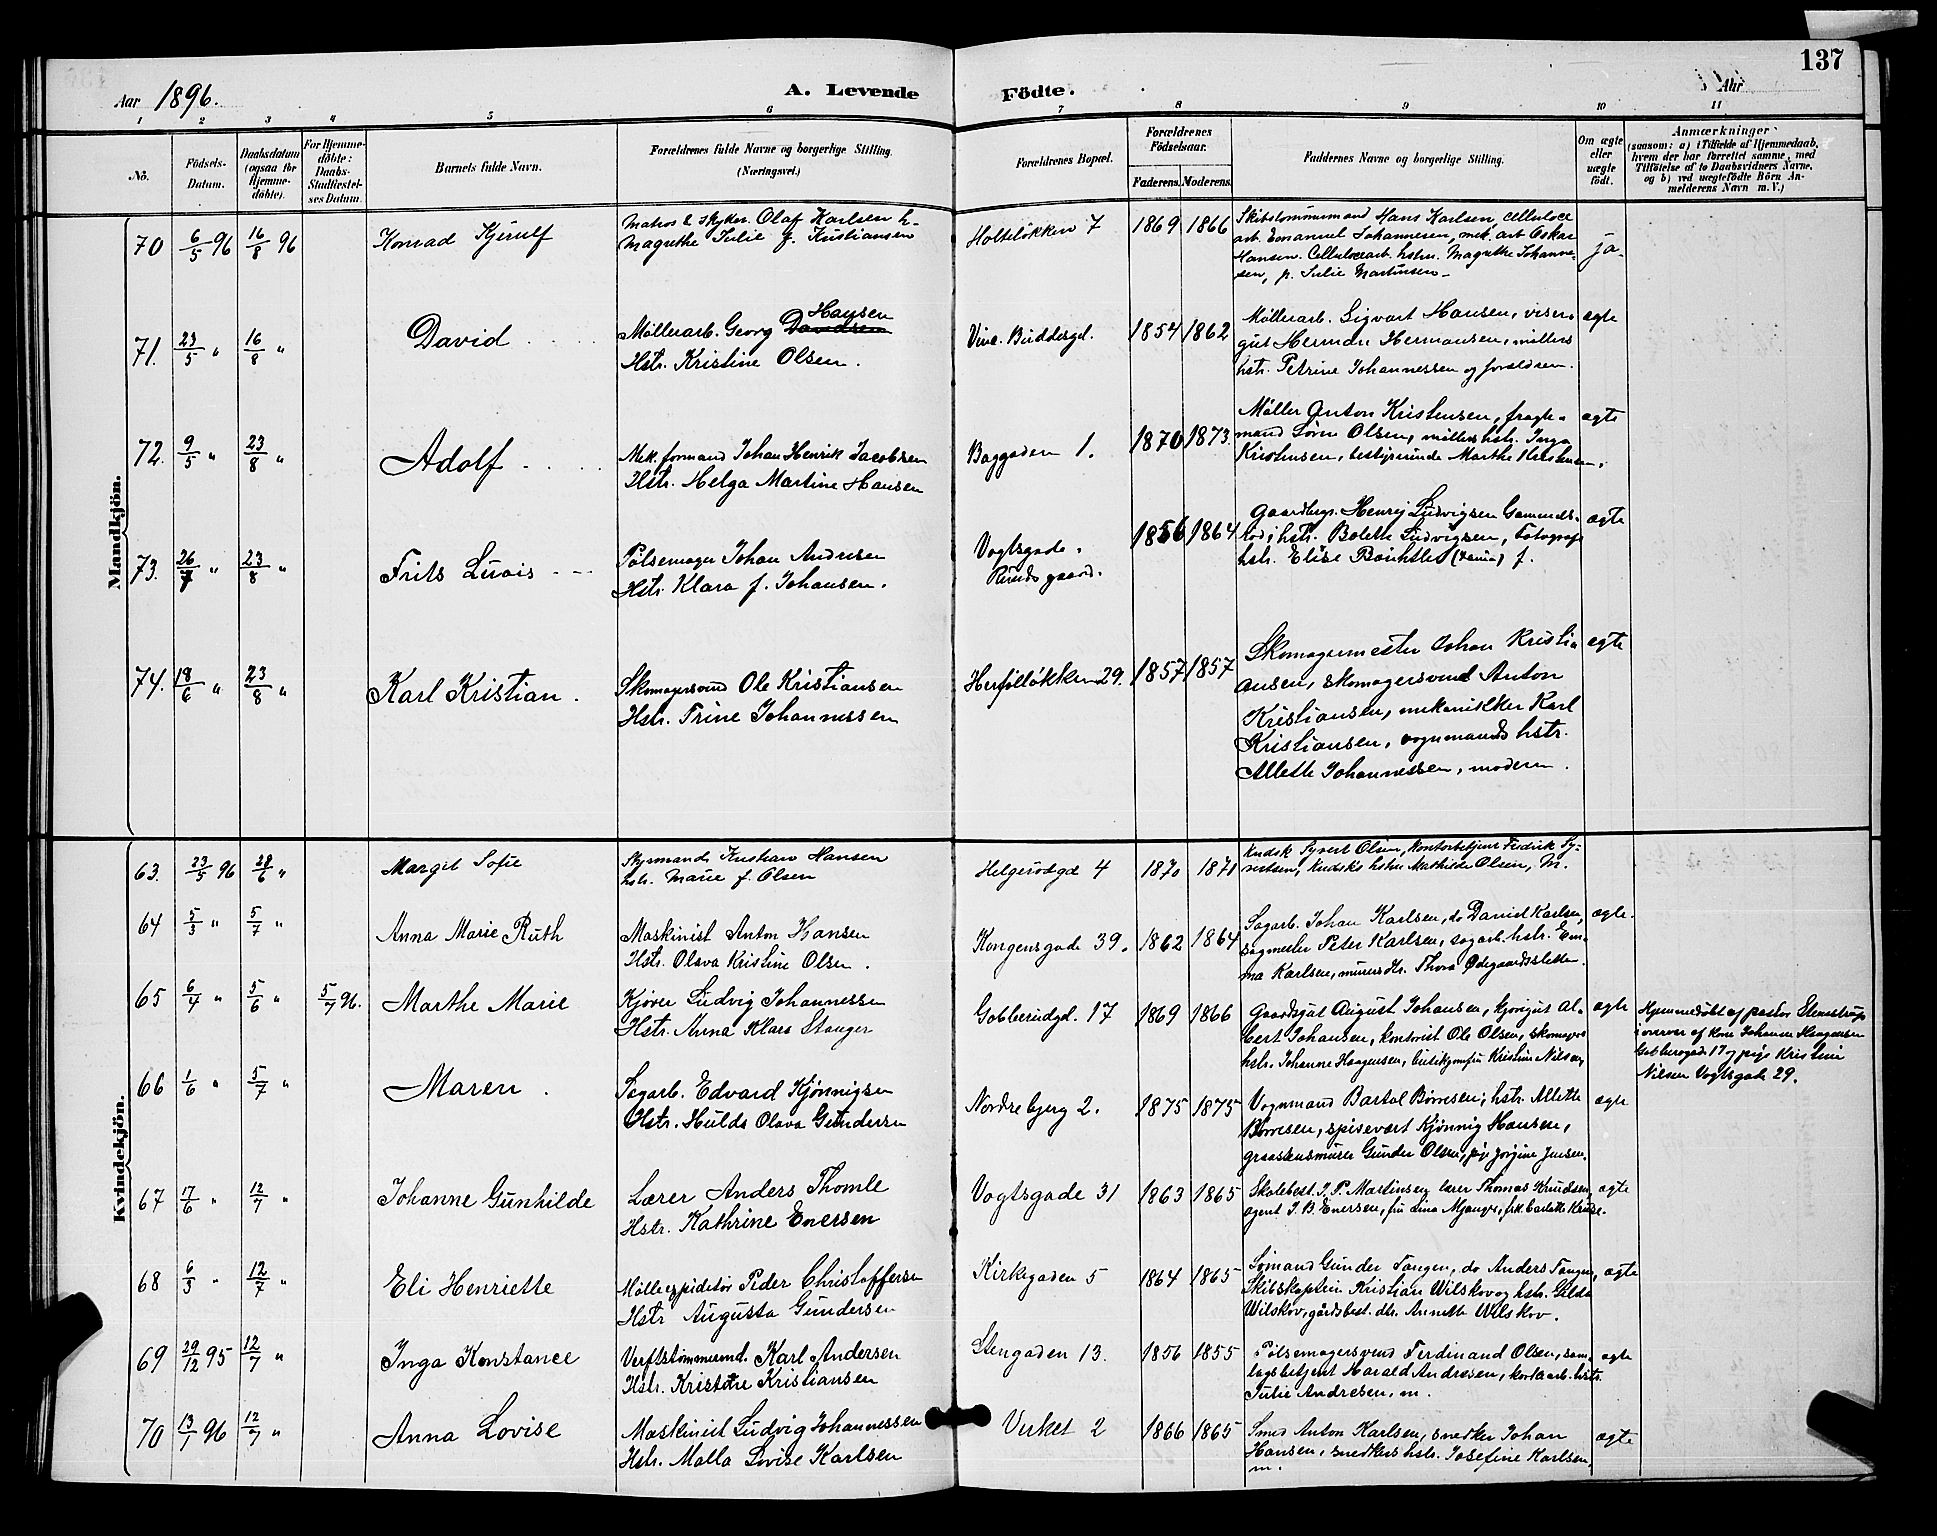 137
Aar 1896.
A. Levende Födte.
Aar
1 2 3 4 5 6 7 8 9 10 11
No.
Födsels-Datum.
Daabsdatum (ogsaa for Hjemmedöbte).
For Hjemmedöbte: Daabs-Stadfestelses Datum.
Barnets fulde Navn.
Forældrenes fulde Navne og borgerlige Stilling. (Næringsvei.)
Forældrenes Bopæl.
Forældrenes Födselsaar.
Faderens. Moderens.
Faddernes Navne og borgerlige Stilling.
Om ægte eller uægte födt.
Anmærkninger (saasom: a) i Tilfælde af Hjemmedaab, hvem der har forrettet samme, med Tilföielse af to Daabsvidners Navne, og b) ved uægtefödte Börn Anmelderens Navn m. V.)
Mandkjön.
70 6/5 96 16/8 96 Konrad Kjerulf
Matros Olaf Karlsen h.
Magrethe Julie f. Kristiansen
Holteløkken 7 1869 1866
Skibstømmermand Hans Karlsen, cellulose
arb. Emanuel Johannesen, mek. arb Oskar
Hansen. Cellulosearb. hstru. Magrethe Johanne-
sen, p. Julie Martinsen
ja.
71. 23/5 " 16/8 " David
Møllerarb. Georg Davidsen Hansen
Hstr. Kristine Olsen.
Vinc. Buddesgd. 1854 1862
Møllerarb. Sigvart Hansen, viser-
gut Herman Hermansen, møllers
hstr. Petrine Johannessen og forældrene.
ægte
72. 9/5 " 23/8 " Adolf
Mek. formand Johan Henrik Jacobsen
Hstr. Helga Martine Hansen
Baggaden 1. 1870 1873.
Møller Anton Kristensen, fragte-
mand Søren Olsen, møllers hstr. Inga
Kristensen, bestyrerinde Marthe Kristensen.
ægte
73. 26/7 " 23/8 " Frits Luois
Pølsemager Johan Andresen
Hstr. Klara f. Johansen.
Vogtsgade.
Runds gaard. 1856 1864
Gaardbrgr. Henrij Ludvigsen Gammels-
rød, hstr. Bolette Ludvigsen, Fotograf
hstr. Elise f.
ægte
74. 18/6 " 23/8 " Karl Kristian.
Skomagersvend Ole Kristiansen
Hstr. Trine Johannessen
Herføløkken 29. 1857 1857
Skomagermester Johan Kristi-
ansen, skomagersvend Anton
Kristiansen, mekanikker Karl
Kristiansen, vognmands hstr.
Allette Johannessen, moderen.
ægte
Kvindekjön.
63. 23/5 96 28/6 " Margit Sofie
Styrmand Kristian Hansen
hstr. Marie f. Olsen
Helgerødgd 4 1870 1870
Kudsk Syvert Olsen, kontorbetjent Fredrik Sy-
vertsen, kudsks hstru Mathilde Olsen, M.
64 5/3 " 5/7 " Anna Marie Ruth
Maskinist Anton Hansen
Hstr. Olava Kristine Olsen.
Kongensgade 39. 1862 1864
Sagarb. Johan Karlsen, do Daniel Karlsen,
sagmester Peter Karlsen, sagarb. hstr. Em-
ma Karlsen, murers dtr. Thora Ødegaardssletten.
ægte.
65 6/4 " 5/6 " 5/7 96. Marthe Marie
Kjører Ludvig Johannessen
Hstr. Anna Klara Stanger
Gobberudgd. 17 1869 1866
Gaardsgut August Johansen, kjøregut Al-
bert Johansen, kontorist Ole Olsen, skomagers
hstr. Johanne Haagensen, butikjomfru Kristine Nilsen,
ægte
Hjemmedøbt af pastor Stenstrup
i nærvær af kone Johanne Haagensen
Gobberogade 17 og pige Kristine
Nilsen Vogtsgade 29.
66 1/6 " 5/7 " Maren.
Sagarb. Edvard Kjønnigsen
Hstr. Hulda Olava Gundersen
Nordre bjerg 2. 1875 1875
Vognmand Bartol Børresen, hstr. Allette
Børresen, spisevært Kjønnig Hansen,
graastensmurer Gunder Olsen, pige Jørgine Jensen.
ægte
67 17/6 " 12/7 " Johanne Gunhilde
Lærer Anders Thomle
Hstr. Kathrine Enersen
Vogtsgade 31 1863 1865
Skolebest. J. P. Martinsen lærer Thomas Knudsen,
agent J. B. Enersen, fru Lina Mjanger, frk.
ægte
68 6/3 " 12/7 " Eli Henriette
Mølleexpeditør Peder Christoffersen
Hstr Augusta Gundersen
Kirkegaden 5 1864 1865
Sømand Gunder Tangen, do Anders Tangen,
Skibskaptein Kristian Wilskov og hstr. Gilda
Wilskov, gårdsbest. dtr. Annette Wilskov.
ægte
69 29/12 95 12/7 " Inga Konstance
Verftstømmermd. Karl Andersen
Hstr. Kristine Kristiansen
Stengaden 13. 1856 1855
Pølsemagersvend Ferdinand Olsen, sam-
lagsbetjent Harald Andresen, hstr.
Julie Andresen, m.
ægte
70 13/1 96 12/7 " Anna Lovise
Maskinist Ludvig Johannessen
Hstr. Malla Lovise Karlsen
Verket 2 1866 1865
Smed Anton Karlsen, snedker Johan
Hansen, snedkers hstr. Josefine Karlsen,
m.
ægte